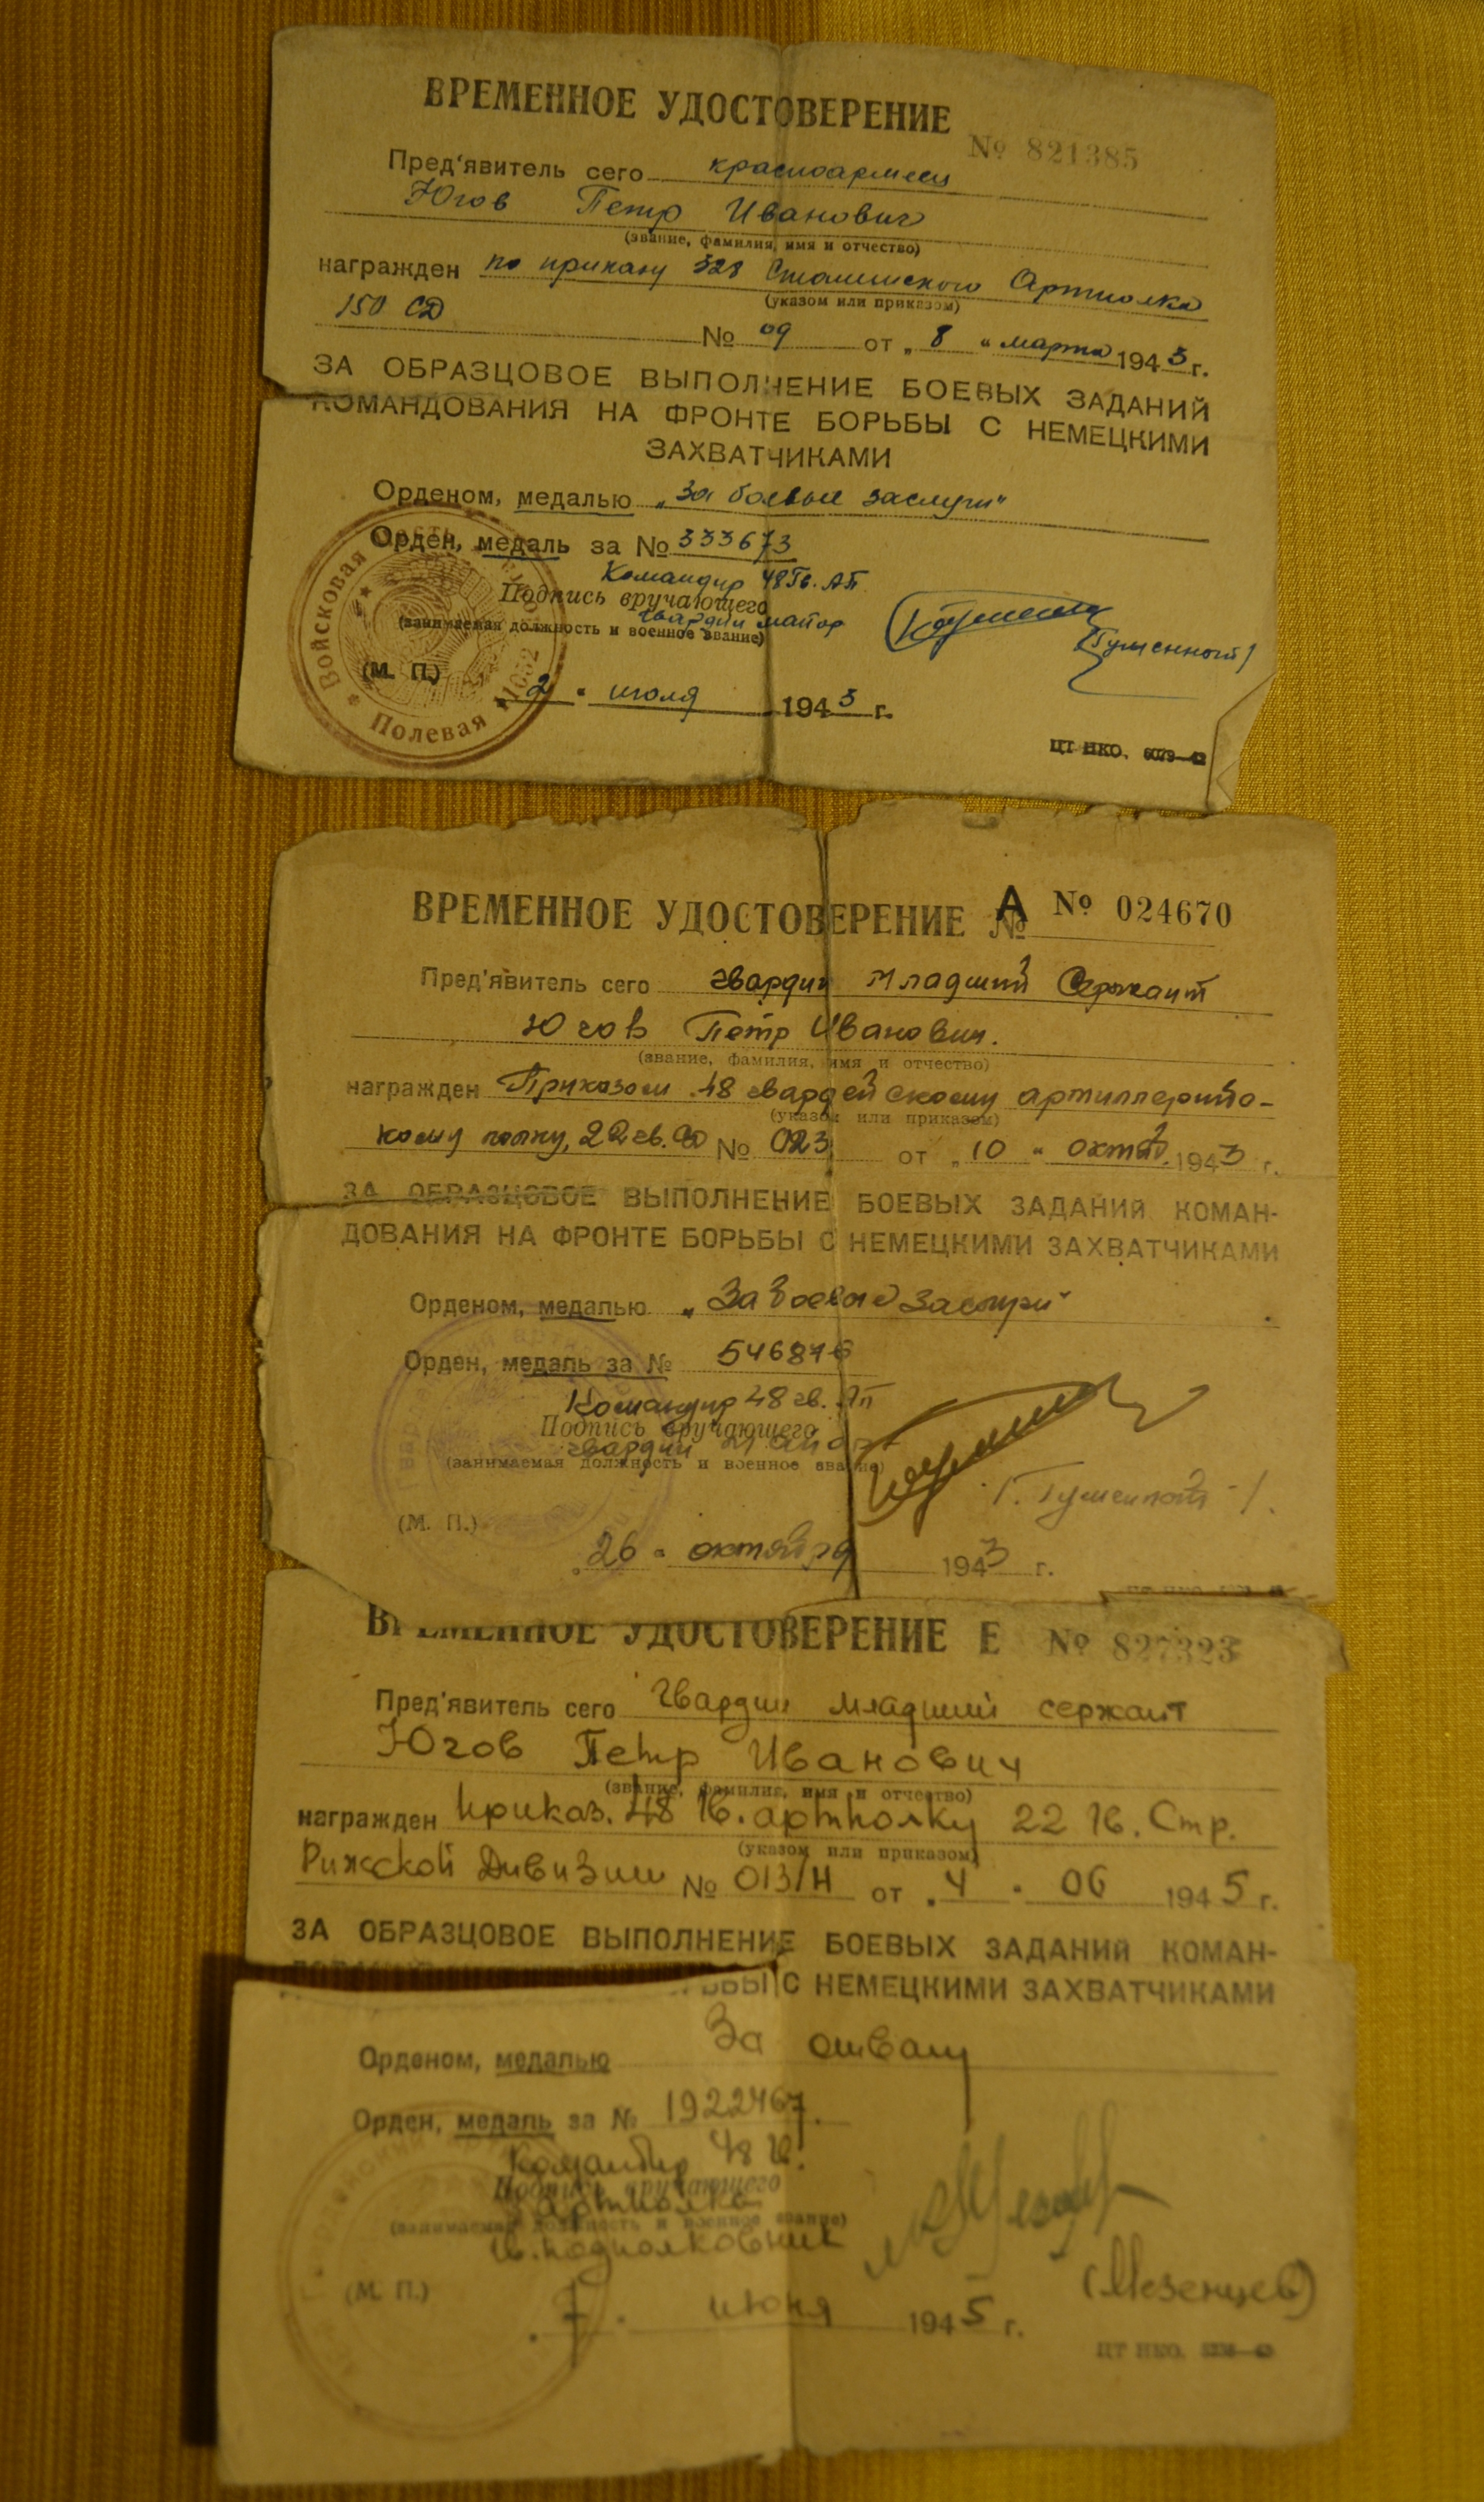 ВРЕМЕННОЕ УДОСТОВЕРЕНИЕ
№ 821385
Пред'явитель сего красноармеец
Югов Петр Иванович
(звание, фамилия, имя и отчество)
награжден по приказу 328 Сталинского Артполка
(указом или приказом)
150 СД
№ 09 от „ 8 " марта 1943 г.
ЗА ОБРАЗЦОВОЕ ВЫПОЛНЕНИЕ БОЕВЫХ ЗАДАНИЙ
КОМАНДОВАНИЯ НА ФРОНТЕ БОРЬБЫ С НЕМЕЦКИМИ
ЗАХВАТЧИКАМИ
Орденом, медалью „За боевые заслуги"
Орден, медаль за № 333673
Командир 48 Гв. АП
Подпись вручающего
гвардии майор
(занимаемая должность и военное звание)
(Гуменной)
(М. П.)
2 " июля 1943 г.
Войсковая часть
Полевая
ЦТ НКО.
ВРЕМЕННОЕ УДОСТОВЕРЕНИЕ № А № 024670
Пред'явитель сего гвардии младший Сержант
Югов Петр Иванович.
(звание, фамилия, имя и отчество)
награжден Приказом 48 гвардейскому артиллерийс-
(указом или приказом)
кому полку, 22 гв. СД № 023 от „ 10 " октяб. 1943 г.
ЗА ОБРАЗЦОВОЕ ВЫПОЛНЕНИЕ БОЕВЫХ ЗАДАНИЙ КОМАН-
ДОВАНИЯ НА ФРОНТЕ БОРЬБЫ С НЕМЕЦКИМИ ЗАХВАТЧИКАМИ
Орденом, медалью „За боевые Заслуги"
Орден, медаль за № 546876
Командир 48 гв. Ап
Подпись вручающего
гвардии майор
(занимаемая должность и военное звание)
/. Гуменной -/.
(М. П.)
„ 26 " октября 1943 г.
ВРЕМЕННОЕ УДОСТОВЕРЕНИЕ Е № 827323
Пред'явитель сего Гвардии младший сержант
Югов Петр Иванович
(звание, фамилия, имя и отчество)
награжден приказ. 48 Гв. артполку 22 Гв. Стр.
(указом или приказом)
Рижской Дивизии № 013/Н от „ 4 " 06 1945 г.
ЗА ОБРАЗЦОВОЕ ВЫПОЛНЕНИЕ БОЕВЫХ ЗАДАНИЙ КОМАН-
БЫ С НЕМЕЦКИМИ ЗАХВАТЧИКАМИ
Орденом, медалью За отвагу
Орден, медаль за № 1922467.
Командир 48 Гв.
Подпись вручающего
артполка
(занимаемая должность и военное звание)
Гв. подполковник
(Мезенцев)
(М. П.)
„ 7 " июня 1945 г.
ЦТ НКО.